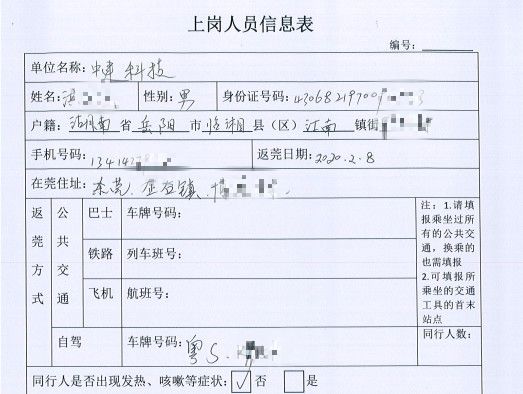 上岗人员信息表
编号：
单位名称：中建科技
姓名： 性别：男 身份证号码：4306821970
户籍：湖南省岳阳市临湘县（区）江南镇街
手机号码：1341 返莞日期：2020.2.8
在莞住址：东莞 镇
返莞方式 公共交通 巴士 车牌号码：
铁路 列车班号：
飞机 航班号：
注：1.请填
报乘坐过所
有的公共交
通，换乘的
也需填报
2.可填报所
乘坐的交通
工具的首末
站点
自驾 车牌号码：粤S. 同行人数：
同行人是否出现发热、咳嗽等症状：☑否 □是